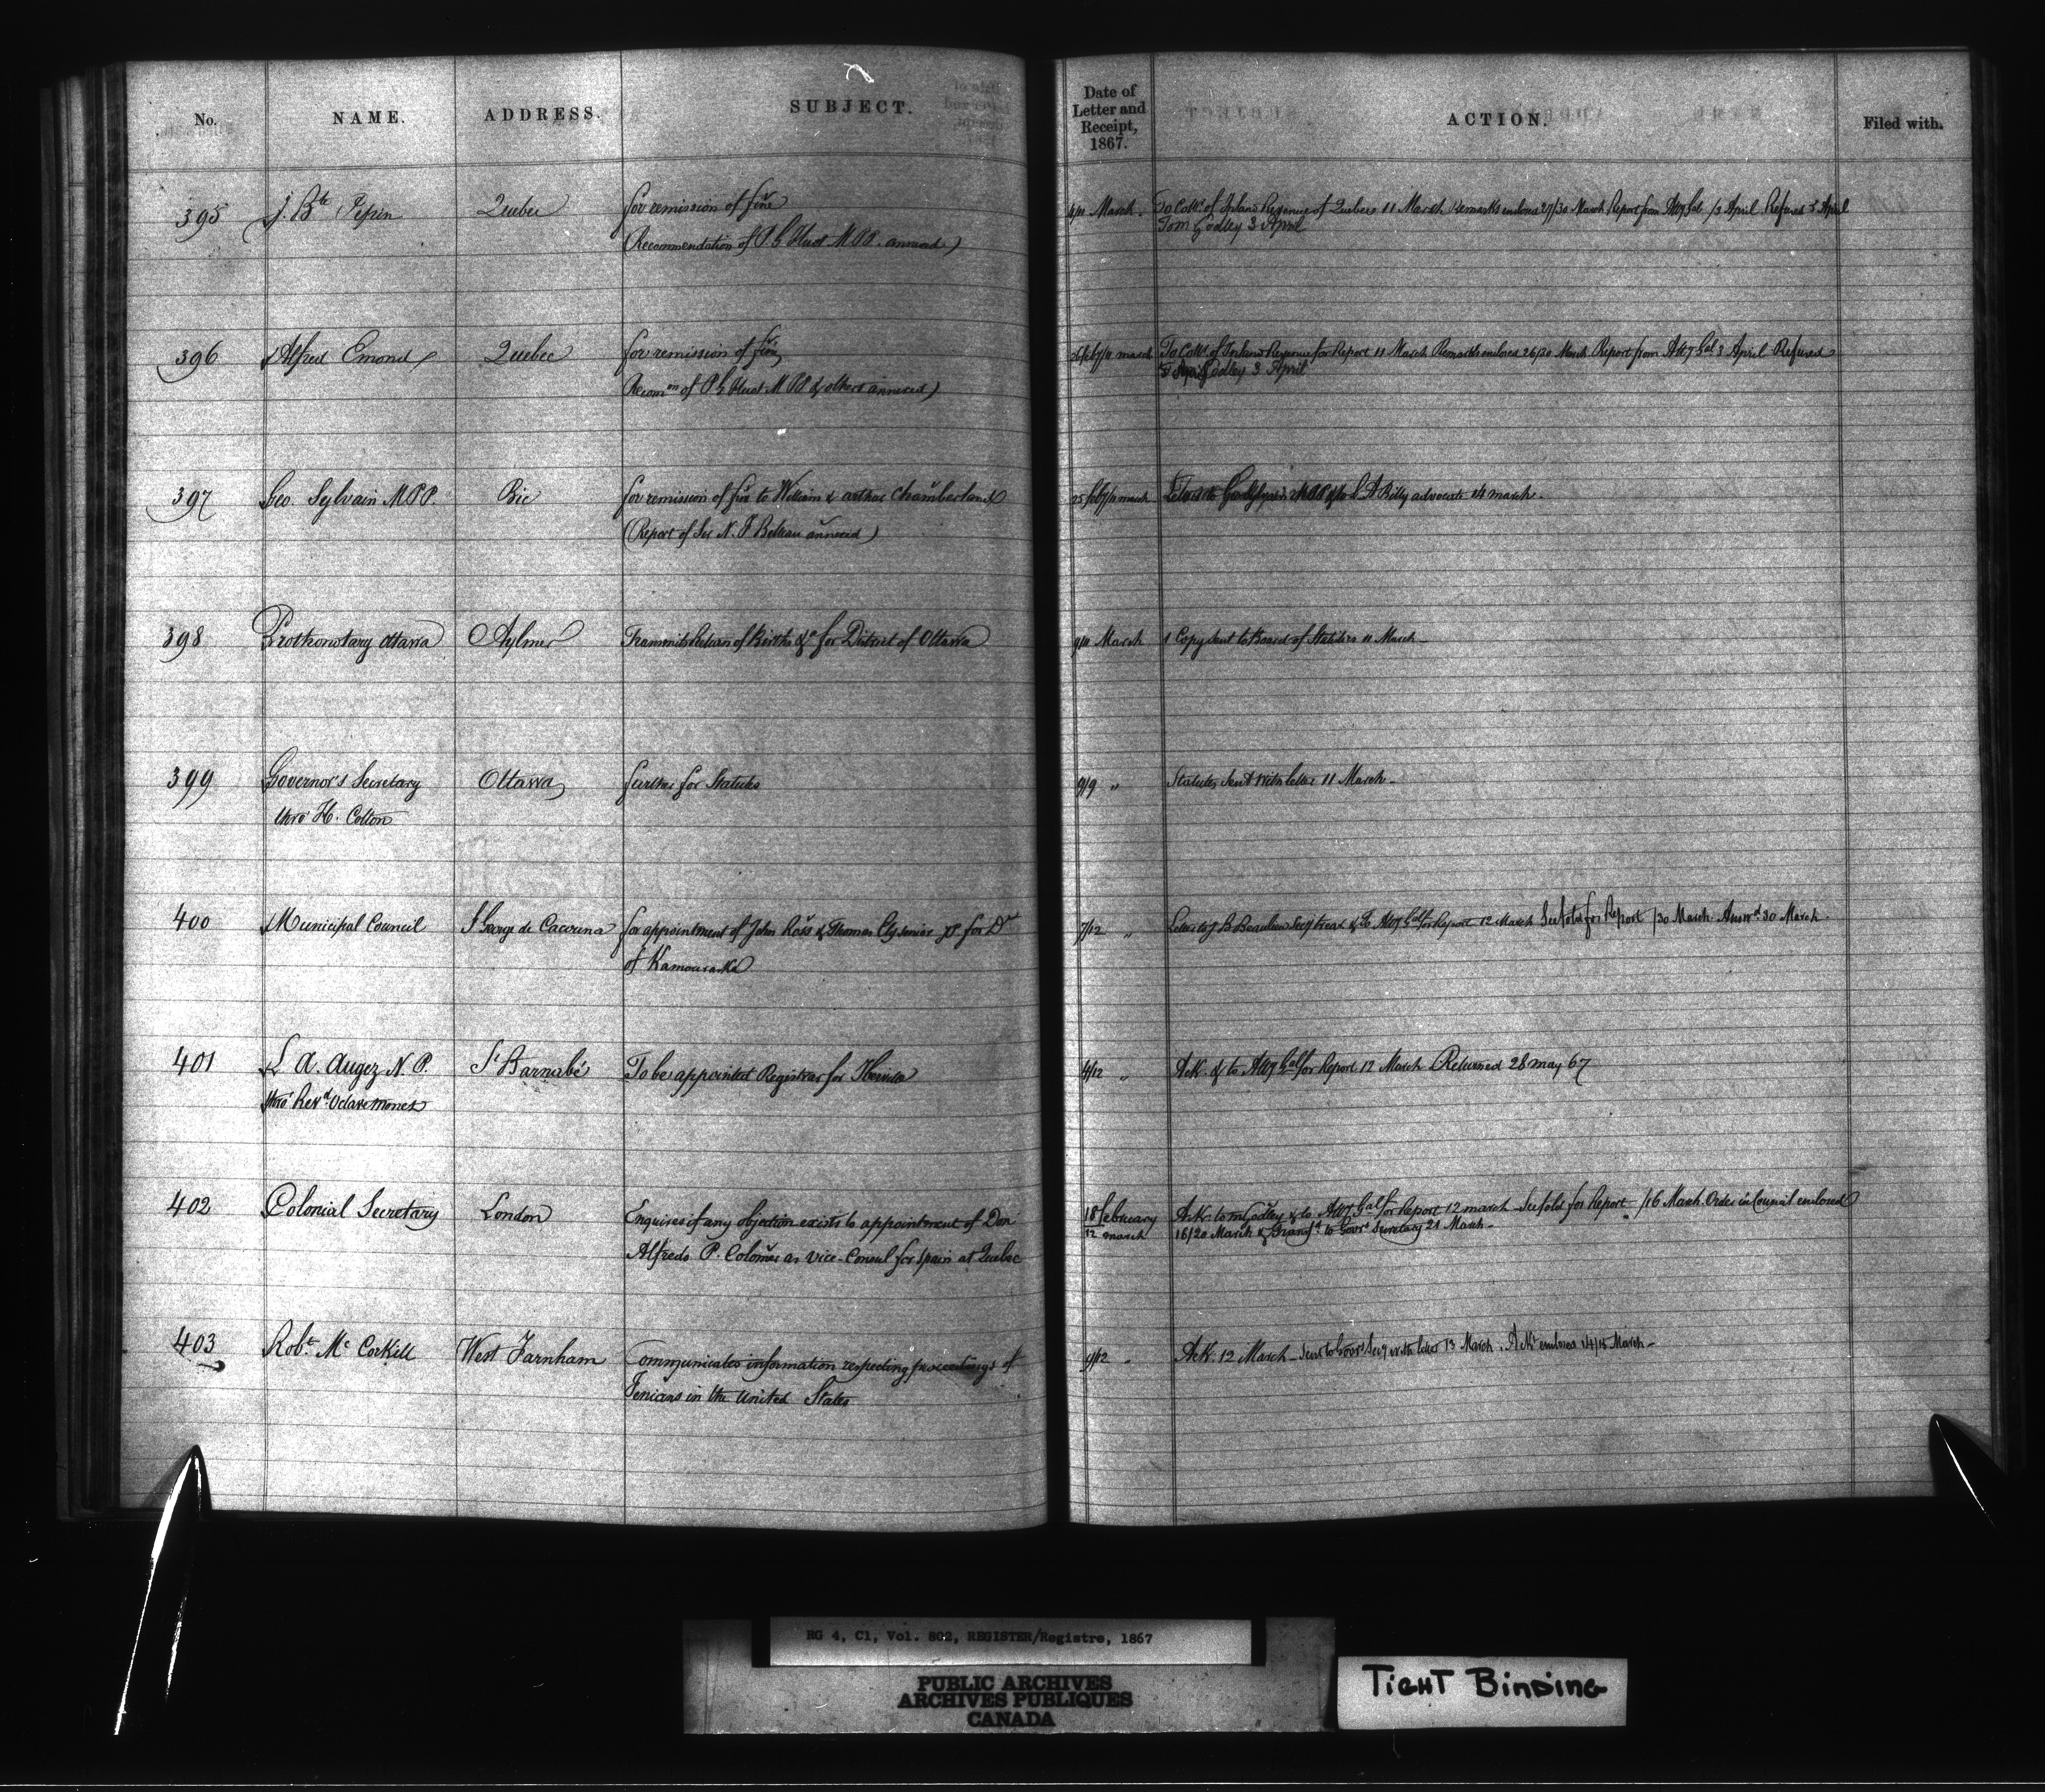 No. NAME. ADDRESS. SUBJECT. Date of Letter and Receipt, 1867. ACTION. Filed with.
395 J. Bte Pepin Quebec for remission of fine 4/11 March. To Comr. of Inland Revenue of Quebec 11 March Remarks enclosed 27/30 March Report from Atty Gal /3 April Refused 5 April
(Recommendation of P G Huot M.P.P. annexed) To Mr Godley 3 April
396 Alfred Emond Quebec for remission of fine 26 feb/11 march To Comr. of Inland Revenue for Report 11 March Remarks enclosed 26/30 March Report from Atty Gal 3 April Refused
Recomon of P G Huot M.P.P & others annexed) Godley 3 April
397 Geo. Sylvain M.P.P. Bic for remission of fine to William & arthur Chamberland 25 feb/11 march L A Billy advocate 14 march.
(Report of Sir N. F Belleau annexed)
398 Prothonotary Ottawa Aylmer Transmits Return of Births &c for District of Ottawa 9/11 March 1 Copy sent to Board of Statistics 11 March
399 Governor's Secretary Ottawa further for Statutes 9/9 " Statutes sent with letter 11 March
thro' H. Cotton
400 Municipal Council St George de Cacouna for appointment of John Ross & Thomas Ely senior JP. for Dt 7/12 " Letter to J B Beaulieu Secy Treas & to Atty Gal for Report 12 March See fold for Report /30 March Answd 30 March
of Kamouraska
401 L. A. Augez N.P. St Barnabé To be appointed Registrar for Iberville 4/12 " Ack. & to Atty Gal for Report 12 March Returned 28 may 67
thro' Revd. Octave Monet
402 Colonial Secretary London Enquires if any objection exists to appointment of Don 18 february 12 march Ack. to Mr Godley & to Atty Gal for Report 12 march See fold for Report /16 March. Order in Council enclosed
Alfredo P. Colomer as vice-Consul for Spain at Quebec 16/20 March & Transfd. to Govrs Secretary 21 March
403 Robt. Mc Corkill West Farnham Communicates information respecting proceedings of 9/12 " Ack. 12 March Sent to Govrs Secy with letter 13 March. Ackt enclosed 14/15 March
Fenians in the United States
RG 4, C1, Vol. 802, REGISTER/Registre, 1867
PUBLIC ARCHIVES
ARCHIVES PUBLIQUES
CANADA
TIGHT BINDING